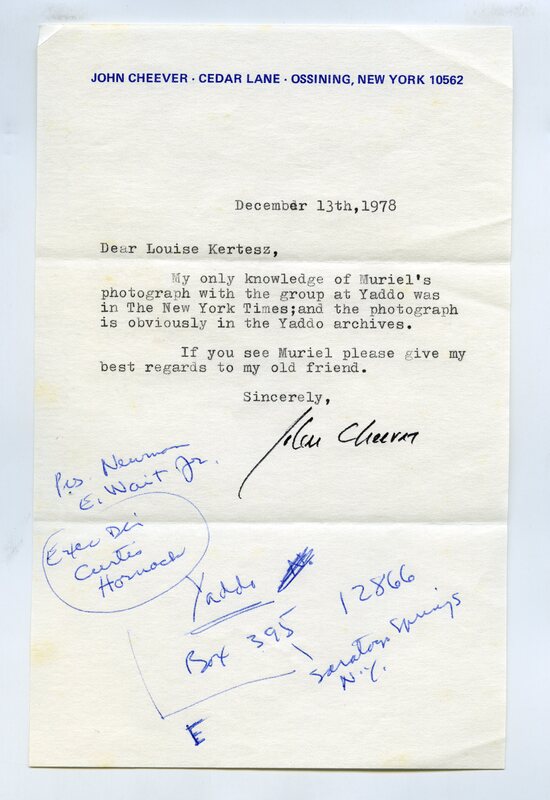 JOHN CHEEVER · CEDAR LANE · OSSINING, NEW YORK 10562
December 13th,1978
Dear Louise Kertesz,
My only knowledge of Muriel's
photograph with the group at Yaddo was
in The New York Times;and the photograph
is obviously in the Yaddo archives.
If you see Muriel please give my
best regards to my old friend.
Sincerely,
John Cheever
Pres. Newman
E. Wait Jr.
Exec Dir
Curtis
Harnack
Yaddo
Box 395 12866
Saratoga Springs
N.Y.
E